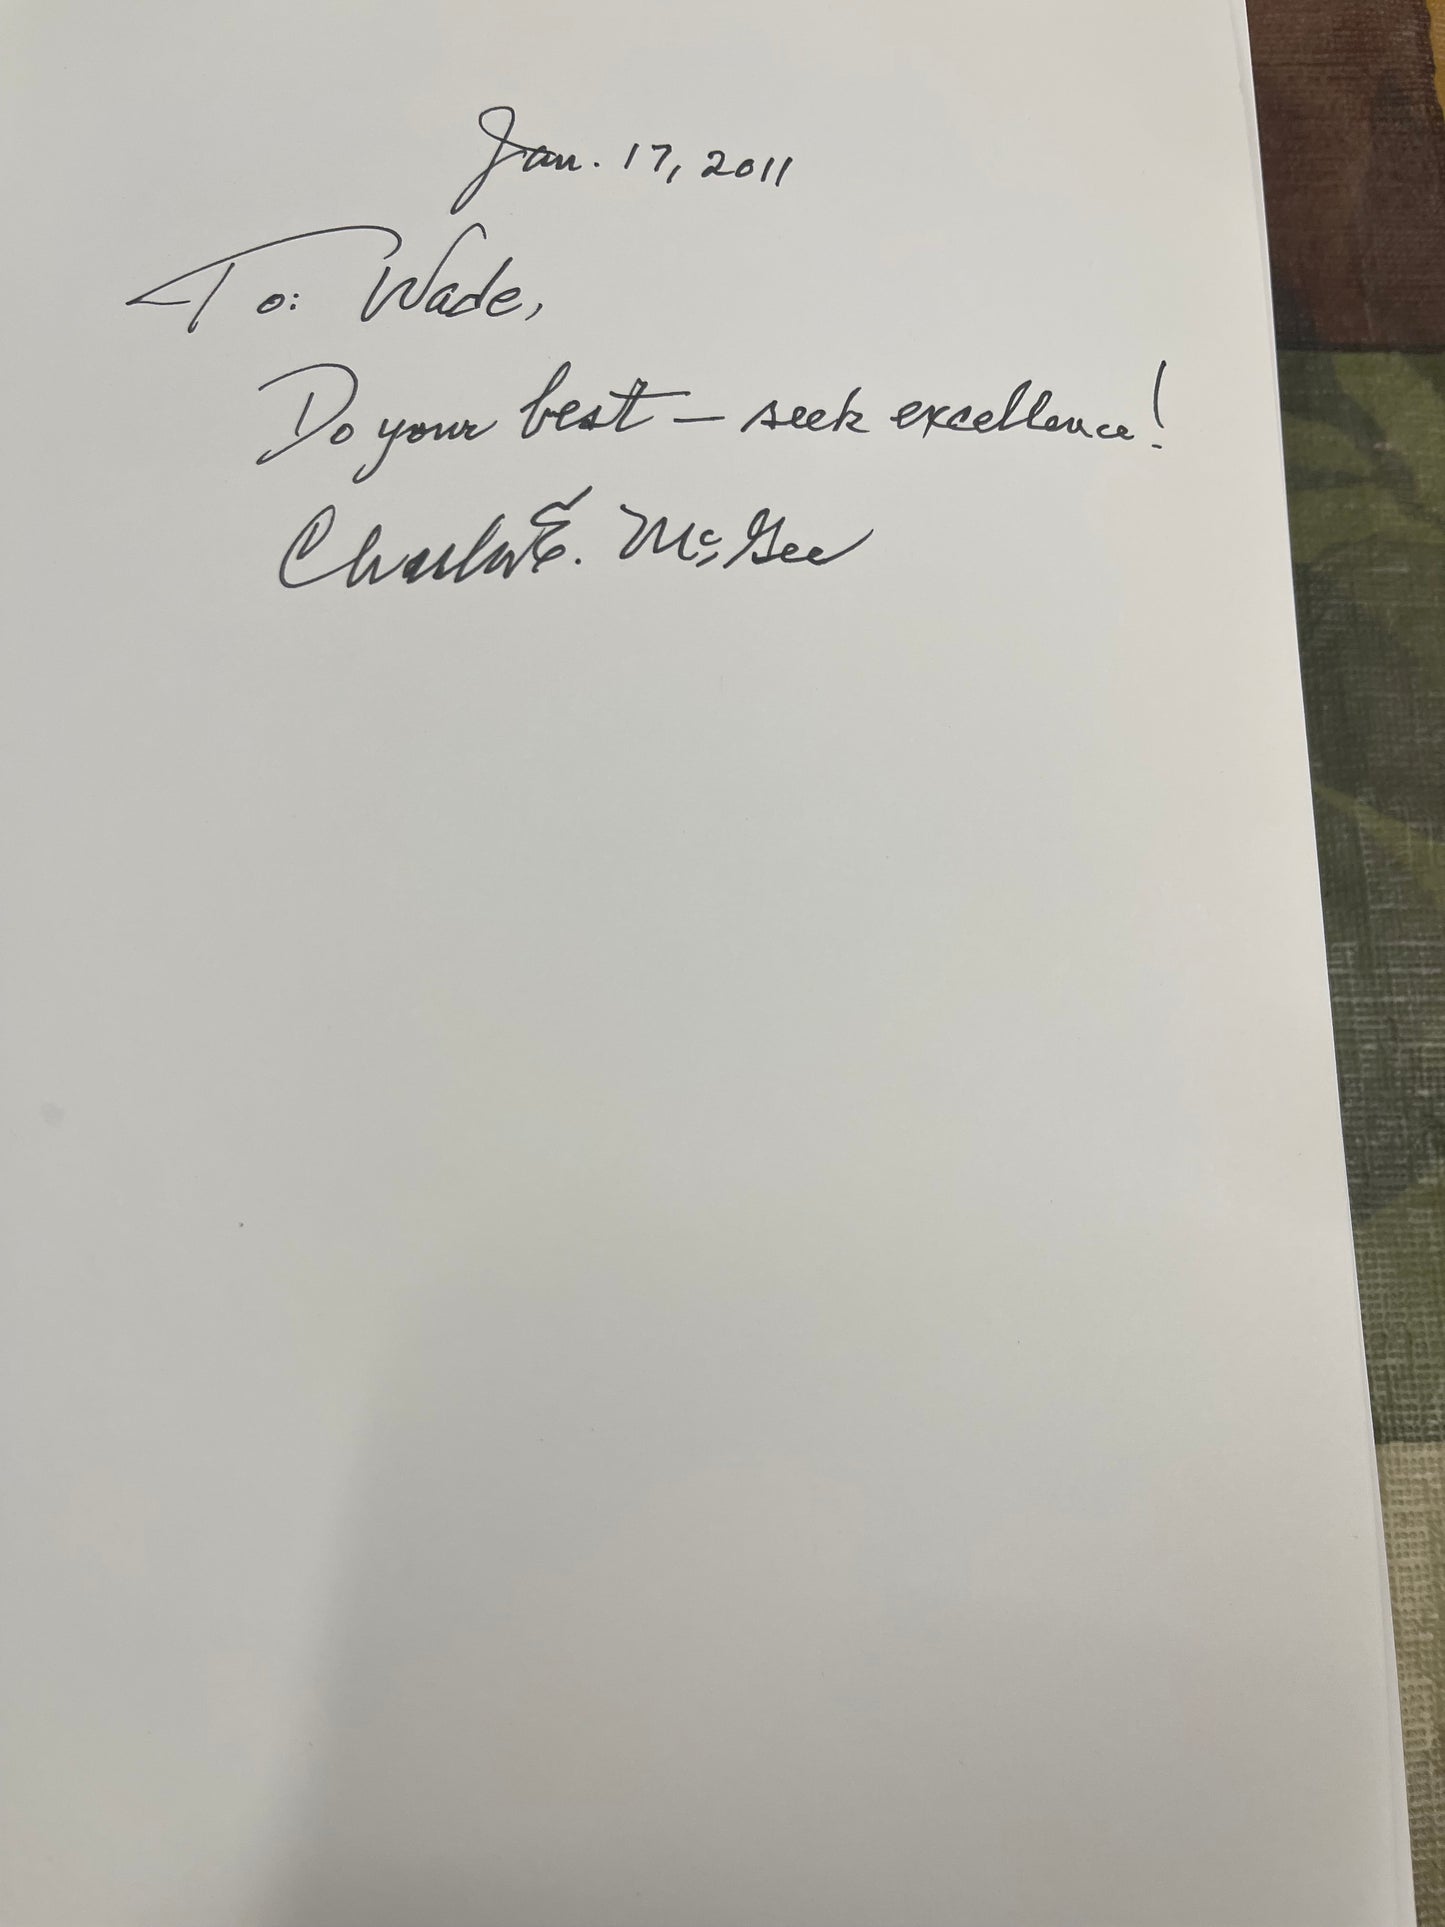 Jan. 17, 2011
To: Wade,
Do your best – seek excellence!
Charles E. McGee